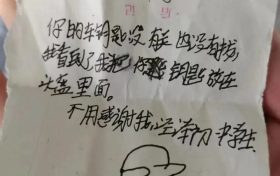 你的车钥匙没有关 也没有拔,
我看到了我把你的钥匙放在
头盔里面。
不用感谢我, 初中学生